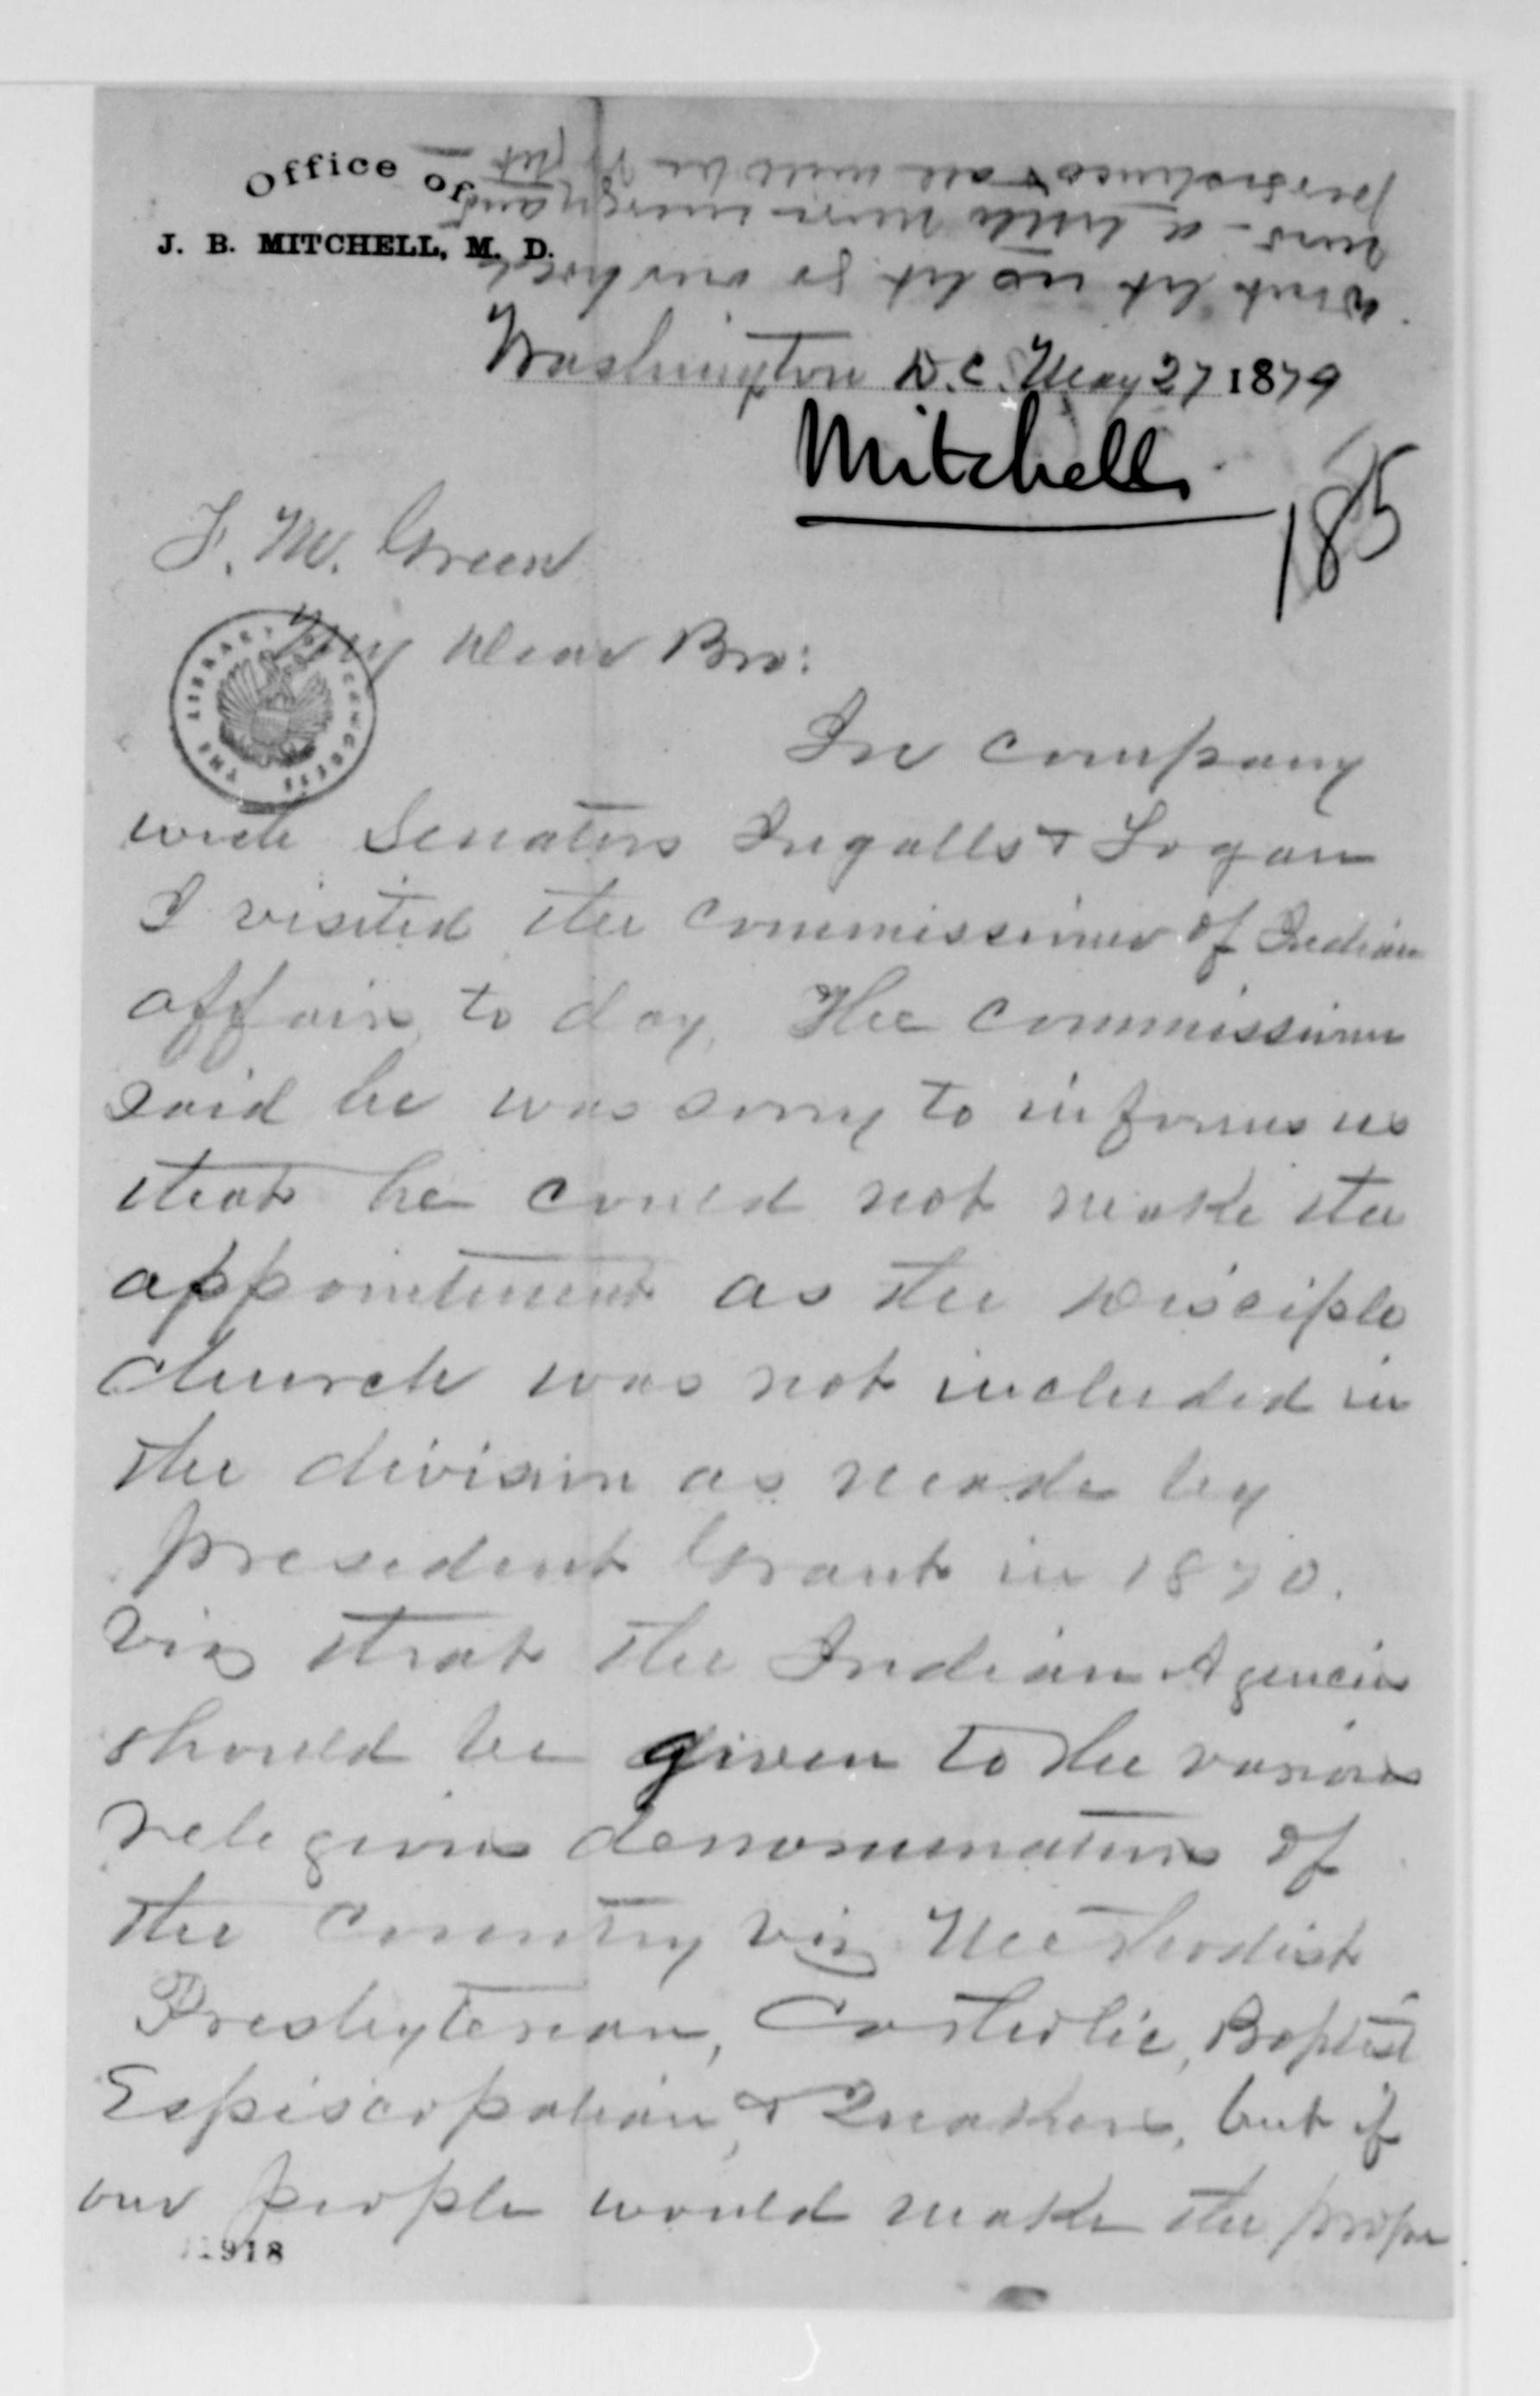 Office of
J. B. MITCHELL, M. D.
dont let us let go our hold
now - a little more energy and
persistence & all will be right
Washington D.C. May 27 1879
Mitchell
185
F. M. Green
My Dear Bro:
THE LIBRARY OF CONGRESS
In company
with Senators Ingalls & Logan
I visited the Commissioner of Indian
affairs to day, The Commissioner
said he was sorry to inform us
that he could not make the
appointment as the Disciple
Church was not included in
the division as made by
President Grant in 1870.
viz that the Indian Agencies
should be given to the various
religious denominations of
the Country viz Methodist
Presbyterian, Catholic, Baptist
Espiscopalian, & Quakers, but if
our people would make the proper
1918